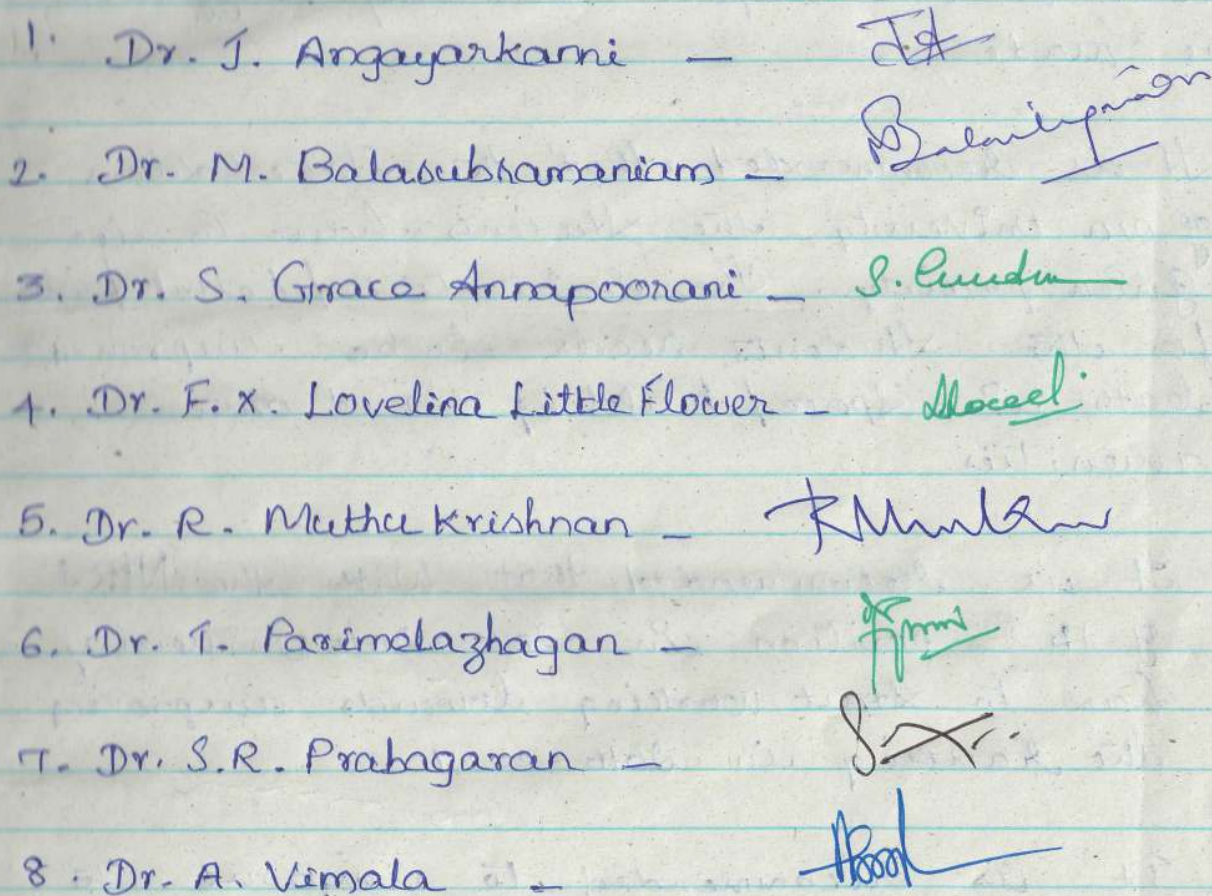 1. Dr. J. Angayarkanni –
2. Dr. M. Balasubramaniam –
3. Dr. S. Grace Annapoorani –
4. Dr. F. X. Lovelina Little Flower –
5. Dr. R. Muthu Krishnan –
6. Dr. T. Parimelazhagan –
7. Dr. S.R. Prabagaran –
8. Dr. A. Vimala –